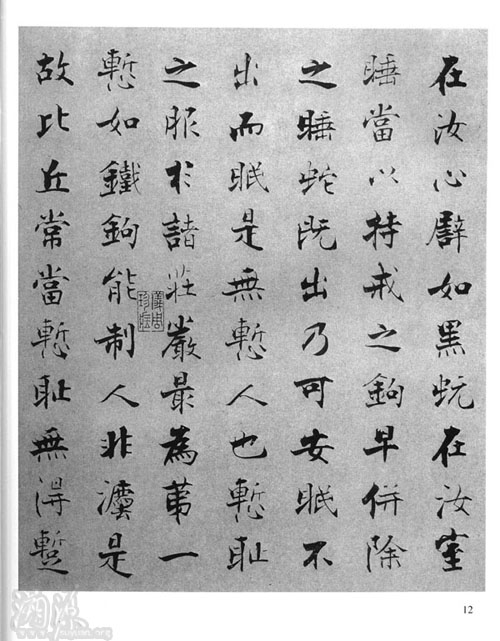 在汝心譬如黑蚖在汝室
睡當以持戒之鉤早併除
之睡蛇既出乃可安眠不
出而眠是無慙人也慙耻
之服於諸莊嚴最為第一
慙如鐵鉤能制人非灋是
故比丘常當慙耻無得蹔
12
溯源
www.suyuan.org